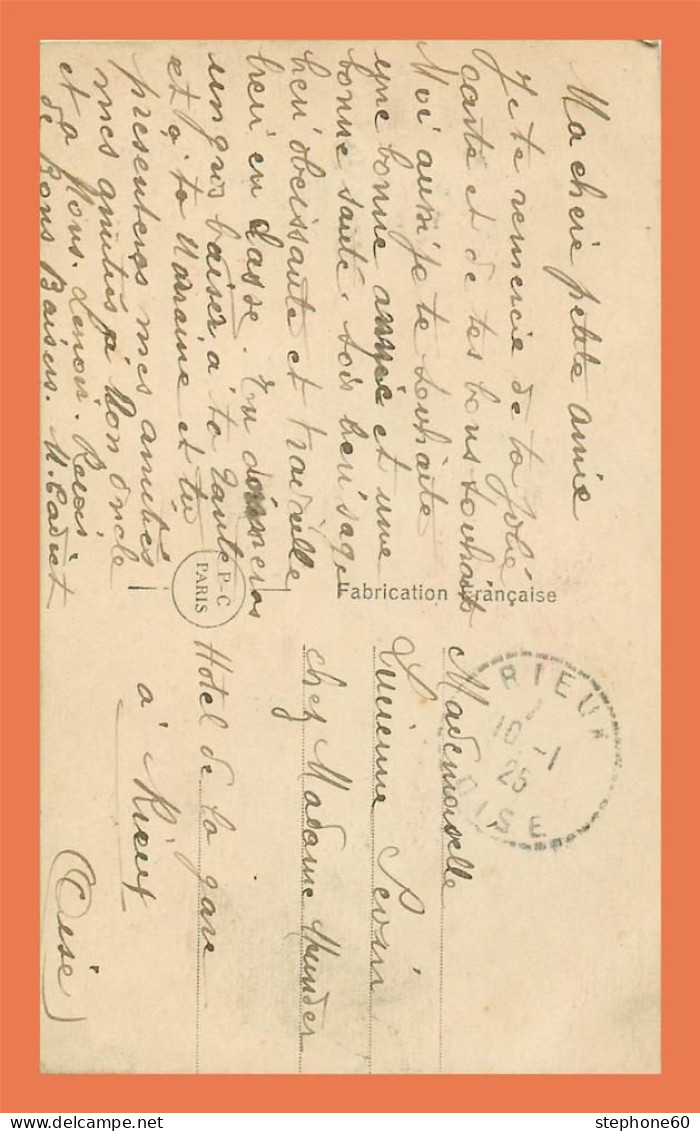 Ma chère petite amie
Je te remercie de ta jolie
carte et de tes bons souhaits
Moi aussi je te souhaite
une bonne année et une
bonne santé. Sois bien sage
bien obeissante et travaille
bien en classe. Tu donneras
un gros baiser a ta tante
et à ta Marraine et tu
presenteras mes amitiés
mes amitiés à Mon oncle
et a Mons. Lenoir. Recois
de Bons Baisers. M. Cadiet
P-C
PARIS
Fabrication Française
RIEUX
10 -1
25
OISE
Mademoiselle
Lucienne
chez Madame
Hotel de la gare
à Rieux
(Oise)
stephone60